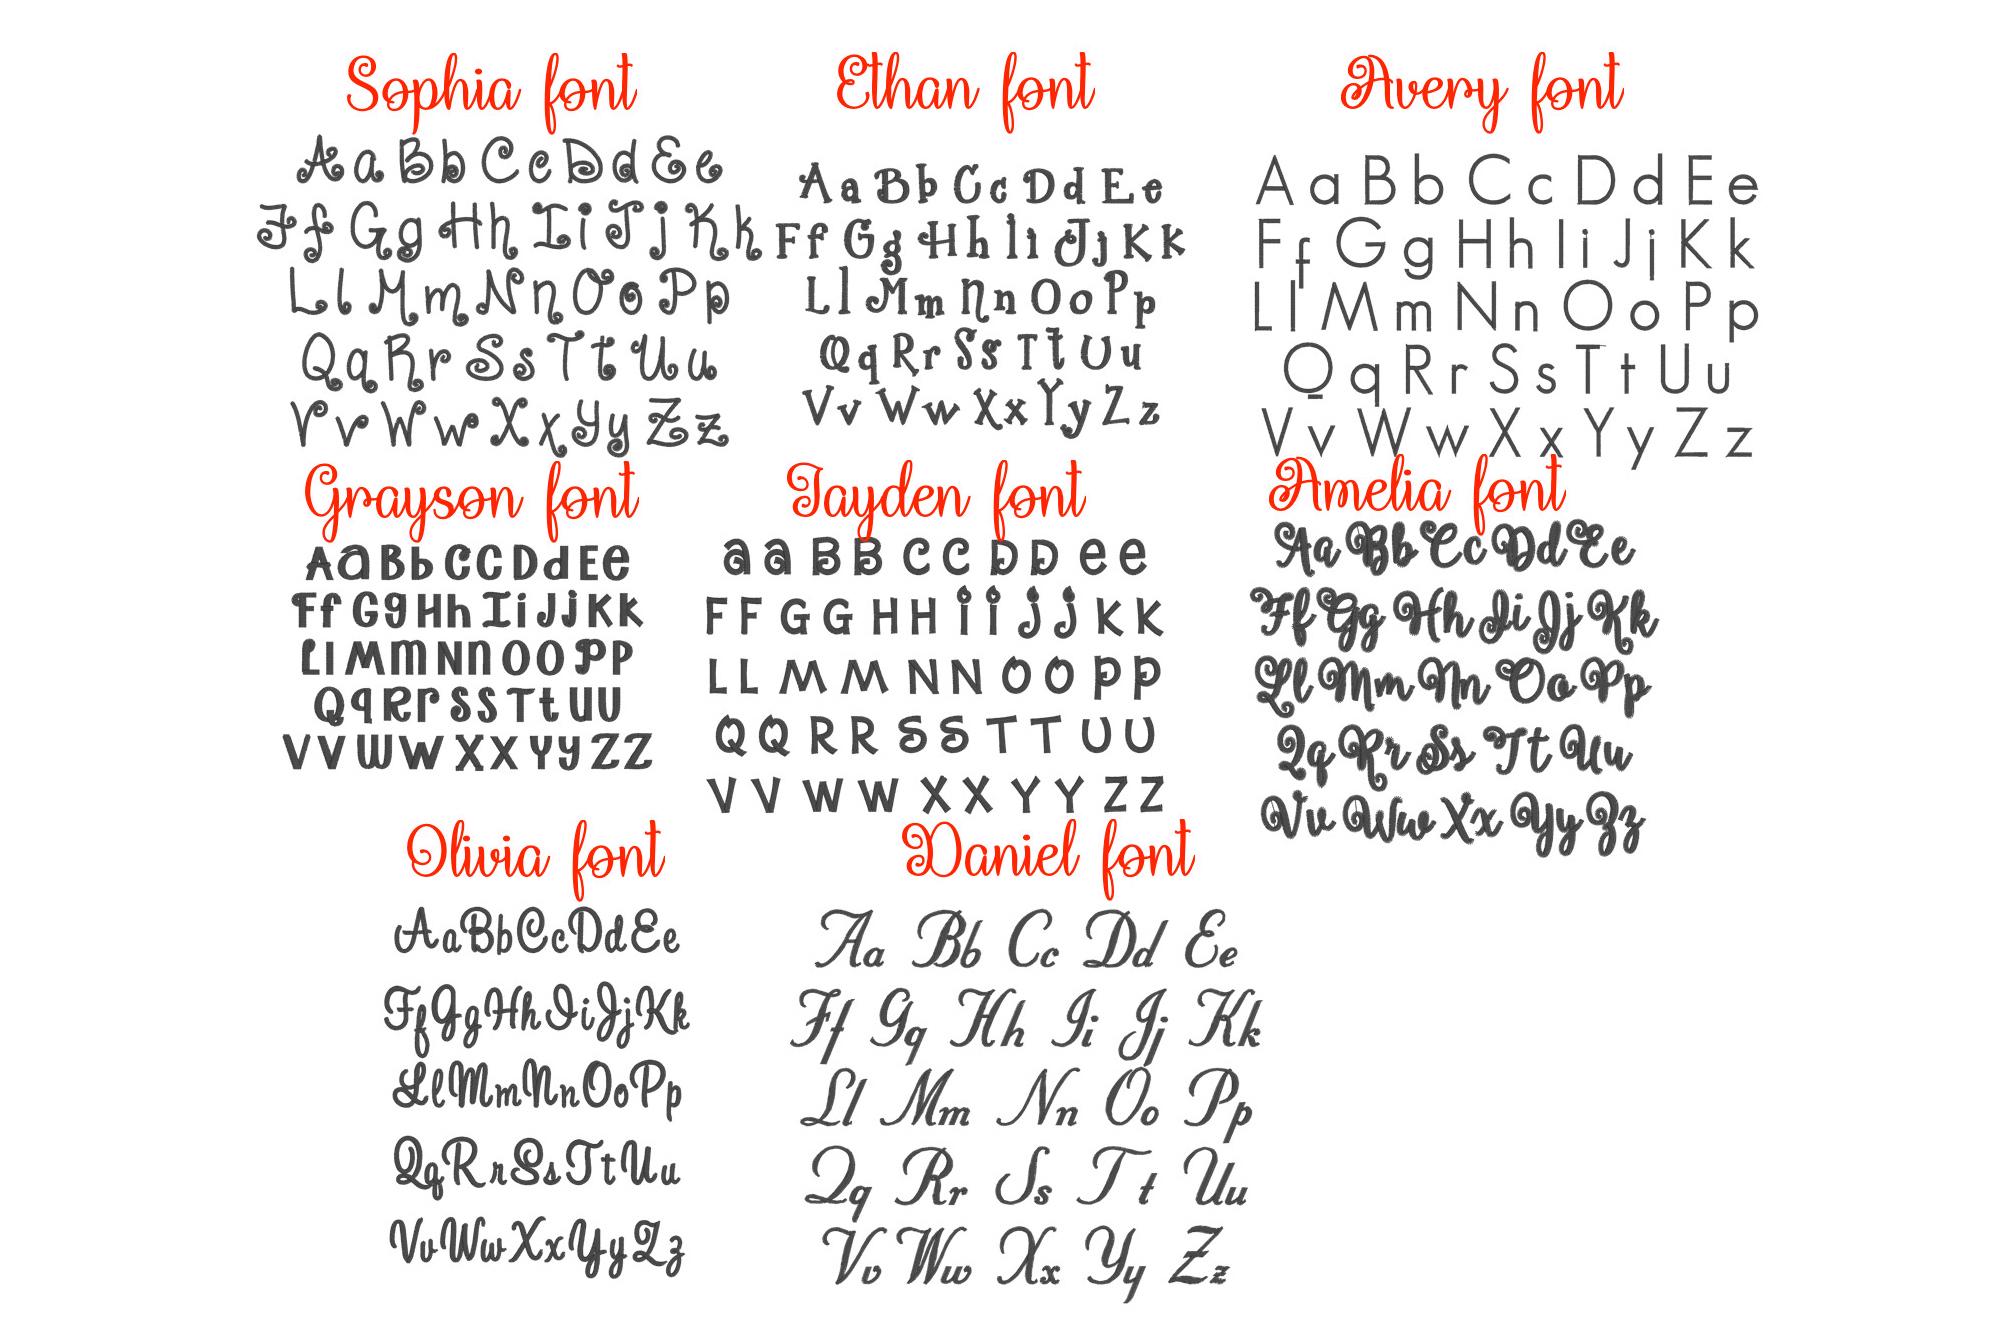 Sophia font
Aa Bb Cc Dd Ee
Ff Gg Hh Ii Jj Kk
Ll Mm Nn Oo Pp
Qq Rr Ss Tt Uu
Vv Ww Xx Yy Zz
Ethan font
Aa Bb Cc Dd Ee
Ff Gg Hh Ii Jj Kk
Ll Mm Nn Oo Pp
Qq Rr Ss Tt Uu
Vv Ww Xx Yy Zz
Avery font
Aa Bb Cc Dd Ee
Ff Gg Hh Ii Jj Kk
Ll Mm Nn Oo Pp
Qq Rr Ss Tt Uu
Vv Ww Xx Yy Zz
Grayson font
Aa Bb Cc Dd Ee
Ff Gg Hh Ii Jj Kk
Ll Mm Nn Oo Pp
Qq Rr Ss Tt Uu
Vv Ww Xx Yy Zz
Jayden font
a a B B C C D D e e
F F G G H H i i j j K K
L L M M N N O O P P
Q Q R R S S T T U U
V V W W X X Y Y Z Z
Amelia font
Aa Bb Cc Dd Ee
Ff Gg Hh Ii Jj Kk
Ll Mm Nn Oo Pp
Qq Rr Ss Tt Uu
Vv Ww Xx Yy Zz
Olivia font
Aa Bb Cc Dd Ee
Ff Gg Hh Ii Jj Kk
Ll Mm Nn Oo Pp
Qq Rr Ss Tt Uu
Vv Ww Xx Yy Zz
Daniel font
Aa Bb Cc Dd Ee
Ff Gg Hh Ii Jj Kk
Ll Mm Nn Oo Pp
Qq Rr Ss Tt Uu
Vv Ww Xx Yy Zz